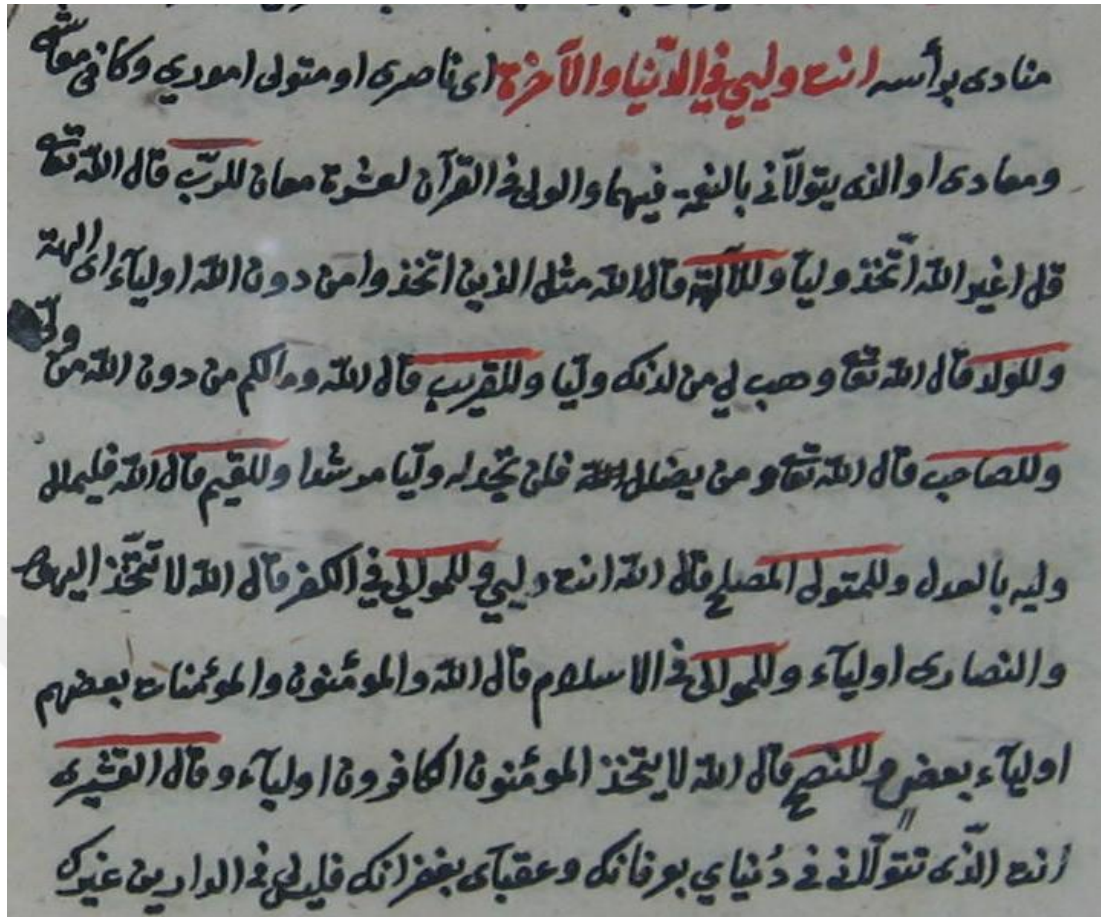 منادى برأسه انت وليي في الدّنيا والآخرة اى ناصرى او متولى امورى وكافى معاشى
ومعادى او الذى يتولّانى بالنعمة فيهما والولى فى القرآن لعشرة معان للربّ قال الله تعا
قل اغير الله اتّخذ وليا وللآلهة قال الله مثل الذين اتخذوا من دون الله اولياء اى الهة
وللولد قال الله تعا وهب لي من لدنك وليّا وللقريب قال الله وما لكم من دون الله من ولىّ
وللصاحب قال الله تعا ومن يضلل فلن تجد له وليّا مرشدا وللقيم قال الله فليملل
وليه بالعدل وللمتولى المصلح قال الله انت وليي وللموالي في الكفر قال الله لا تتّخذ اليهود
والنصارى اولياء وللموالى فى الاسلام قال الله والمؤمنون والمؤمنات بعضهم
اولياء بعض وللنصح قال الله لا يتخذ المؤمنون الكافرون اولياء وقال القشيرى
انت الّذى تتولّانى فى دُنياي بعرفانك وعقباى بغفرانك فليس لى فى الدارين غيرك